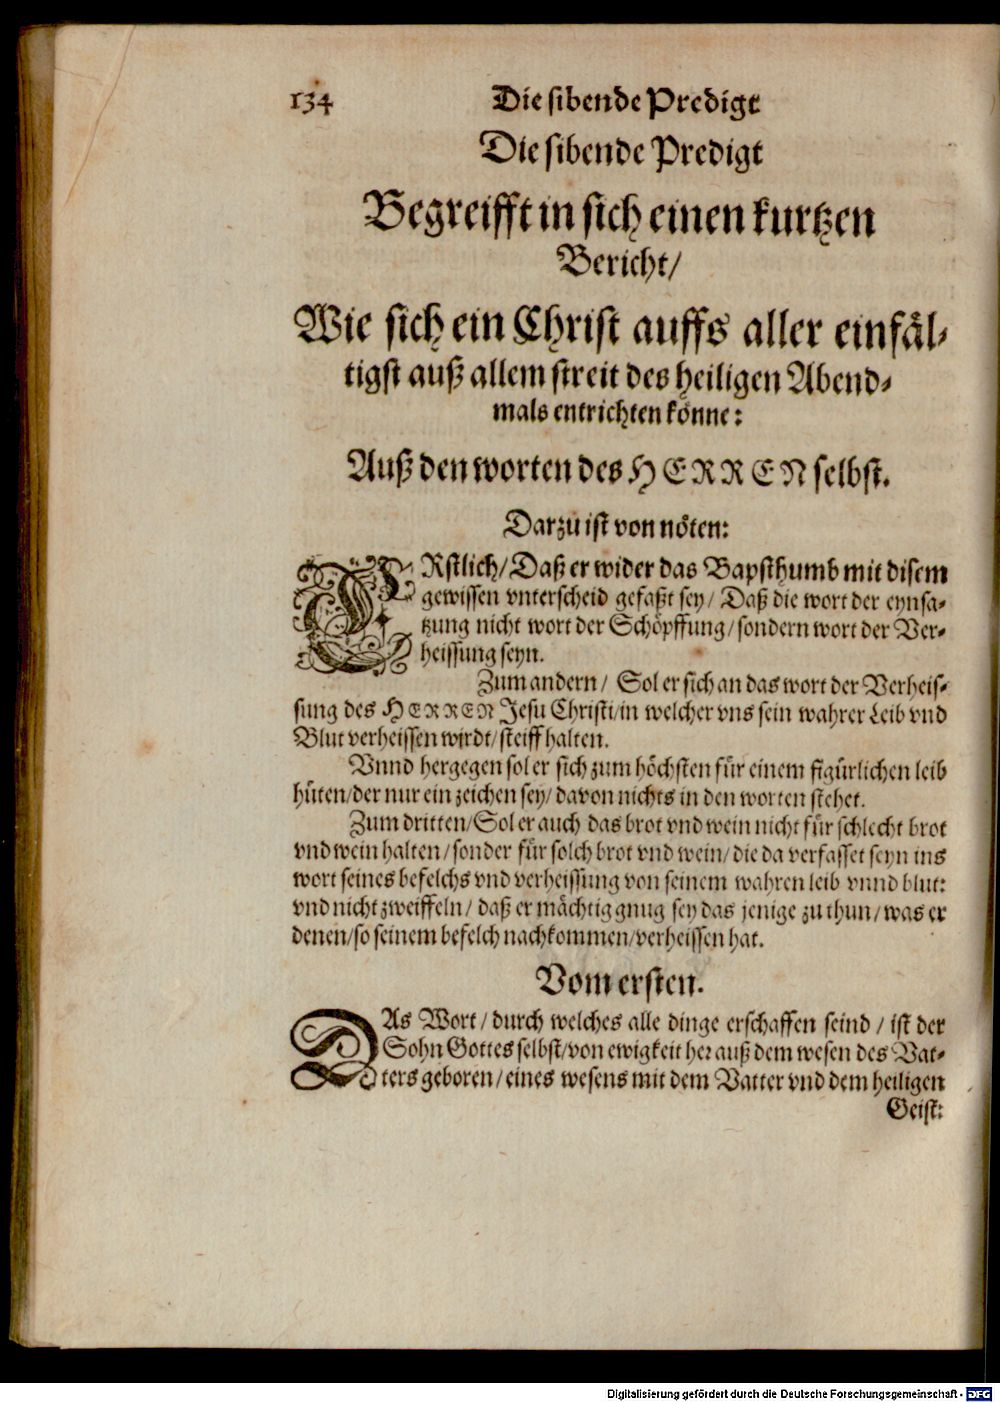 134 Die sibende Predigt
Die sibende Predigt
Begreifft in sich einen kurtzen
Bericht/
Wie sich ein Christ auffs aller einfäl-
tigst auß allem streit des heiligen Abend-
mals entrichten könne:
Auß den worten des HERREN selbst.
Darzu ist von nöten:
ERstlich/ Daß er wider das Bapsthumb mit disem
gewissen vnterscheid gefaßt sey/ Daß die wort der eynsa-
tzung nicht wort der Schöpffung/ sondern wort der Ver-
heissung seyn.
Zum andern/ Sol er sich an das wort der Verheis-
sung des HERREN Jesu Christi/ in welcher vns sein wahrer Leib vnd
Blut verheissen wirdt/ steiff halten.
Vnnd hergegen sol er sich zum höchsten für einem figürlichen leib
hüten/ der nur ein zeichen sey/ davon nichts in den worten stehet.
Zum dritten/ Sol er auch das brot vnd wein nicht für schlecht brot
vnd wein halten/ sonder für solch brot vnd wein/ die da verfasset seyn ins
wort seines befelchs vnd verheissung von seinem wahren leib vnnd blut:
vnd nicht zweiffeln/ daß er mächtig gnug sey das jenige zu thun/ was er
denen/ so seinem befelch nachkommen/ verheissen hat.
Vom ersten.
DAs Wort/ durch welches alle dinge erschaffen seind/ ist der
Sohn Gottes selbst/ von ewigkeit her auß dem wesen des Vat-
ters geboren/ eines wesens mit dem Vatter vnd dem heiligen
Geist:
Digitalisierung gefördert durch die Deutsche Forschungsgemeinschaft - DFG